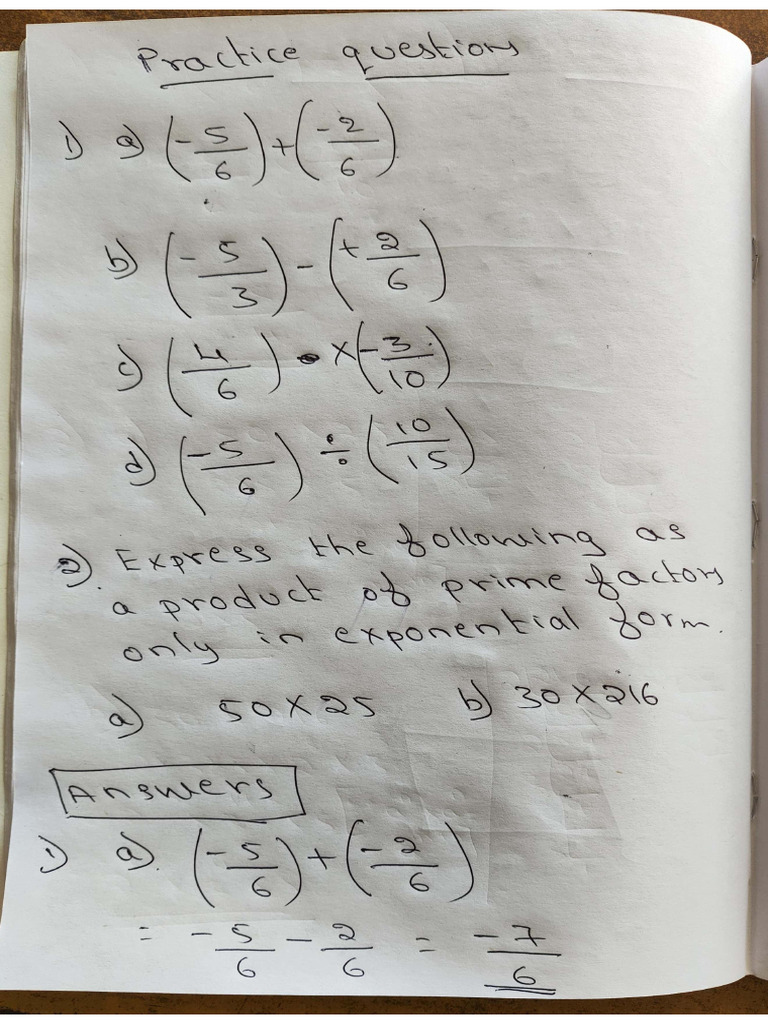 Practice questions
1) a) (-5/6) + (-2/6)
b) (-5/3) - (+2/6)
c) (4/6) × (-3/10)
d) (-5/6) ÷ (10/15)
2). Express the following as
a product of prime factors
only in exponential form.
a) 50 × 25 b) 30 × 216
Answers
1) a). (-5/6) + (-2/6)
= -5/6 - 2/6 = -7/6